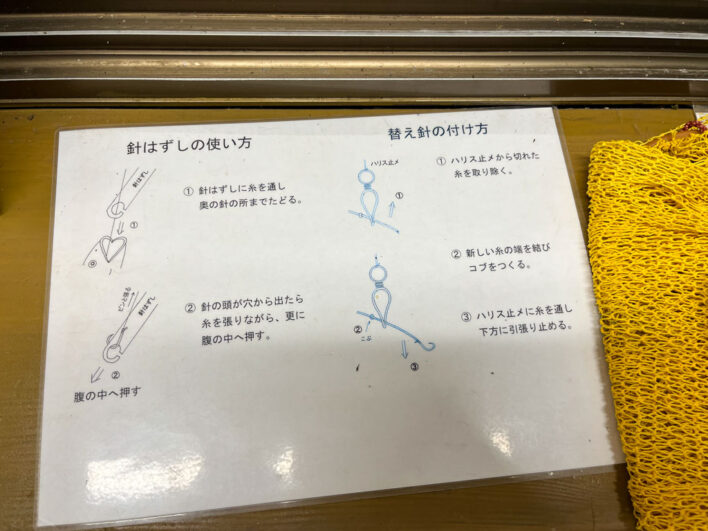 針はずしの使い方
針はずし
①
① 針はずしに糸を通し
奥の針の所までたどる。
ピンと張る
針はずし
②
腹の中へ押す
② 針の頭が穴から出たら
糸を張りながら、更に
腹の中へ押す。
替え針の付け方
ハリス止メ
①
① ハリス止メから切れた
糸を取り除く。
②
コブ
③
② 新しい糸の端を結び
コブをつくる。
③ ハリス止メに糸を通し
下方に引張り止める。